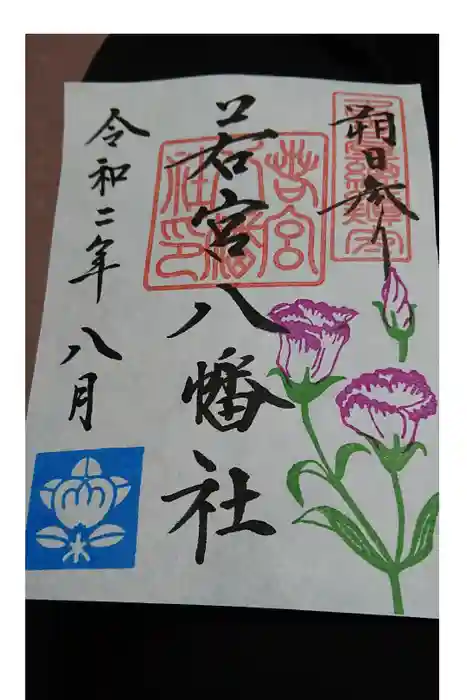 朔日参り
若宮八幡社
令和二年八月
若宮八幡社印